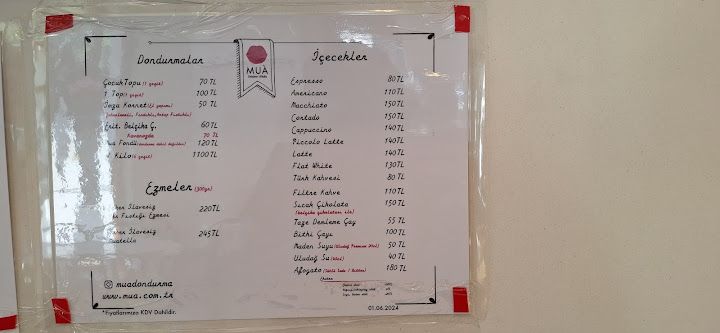 Dondurmalar
Çocuk Topu (1 çeşit) 70 TL
1 Top (1 çeşit) 100 TL
50 TL
Erit. Belçika Ç. 60 TL
Kavanozda 70 TL
Fondü 120 TL
Kilo 1100 TL
Ezmeler (300gr)
Şeker İlavesiz
Fıstığı Ezmesi 220 TL
Şeker İlavesiz 245 TL
muadondurma
www.mua.com.tr
*Fiyatlarımıza KDV Dahildir.
MUA
İçecekler
Espresso 80 TL
Americano 110 TL
Macchiato 150 TL
Cortado 150 TL
Cappuccino 140 TL
Piccolo Latte 140 TL
Latte 140 TL
Flat White 130 TL
Türk Kahvesi 80 TL
Filtre Kahve 110 TL
Sıcak Çikolata 150 TL
(Belçika çikolatası ile)
Taze Demleme Çay 55 TL
Bitki Çayı 100 TL
Maden Suyu 50 TL
Uludağ Su 40 TL
Affogato 180 TL
01.06.2024